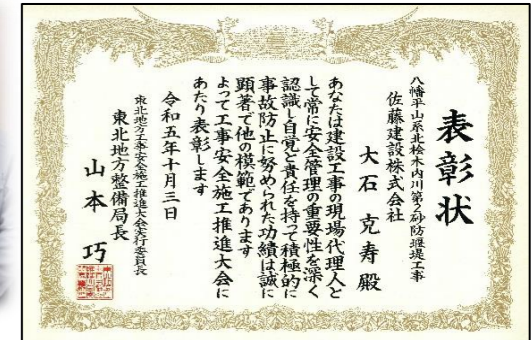 表彰状
八幡平山系北桧木内川第2砂防堰堤工事
佐藤建設株式会社
大石克寿殿
あなたは建設工事の現場代理人と
して常に安全管理の重要性を深く
認識し自覚と責任を持って積極的に
事故防止に努められた功績は誠に
顕著で他の模範であります
よって工事安全施工推進大会に
あたり表彰します
令和五年十月三日
東北地方工事安全施工推進大会実行委員長
東北地方整備局長
山本巧